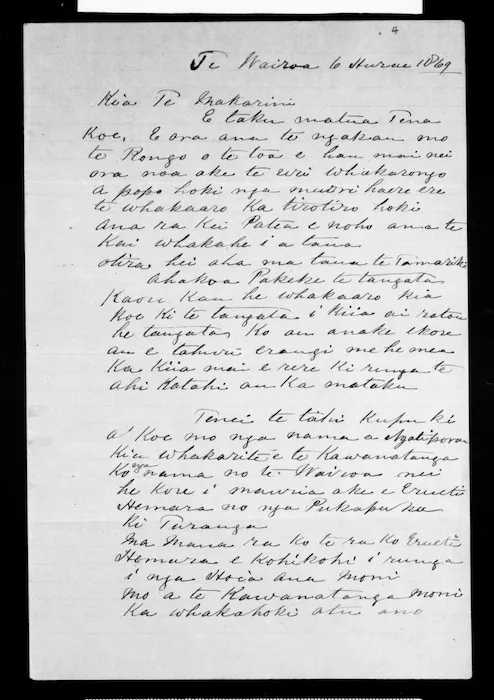 4
Te Wairoa 6 Hurae 1869
Kia Te Makarini
E taku matua Tena
Koe, E ora ana te ngakau mo
te Rongo o te toa e hau mai nei
ora noa ake te iwi whakarongo
a popo hoki nga muri haere ere
te whakaaro Ka tirotiro hoki
ana ra Kei Patea e noho ana te
Kai whakahe i a taua
otira hei aha ma taua te Tamariki
Ahakoa Pakeke te tangata
Kaore Kau he whakaaro kia
Koe Ki te tangata i Kiia ai ratou
he tangata, Ko au anake ekore
au e tahuri erangi me he mea
Ka Kiia mai e rere Ki runga te
ahi Katahi au Ka mataku
Tenei te tahi Kupu ki
a Koe mo nga nama a Ngatiporou
Kia whakarite e te Kawanatanga
Ko nga nama no te Wairoa nei
he Kore i mauria ake e Erueti
Hemara no nga Pukapuka
Ki Turanga
Ma Mana ra Ko te ra Ko Erueti
Hemara e Kohikohi i runga
i nga Hoia ana Moni
Mo a te Kawanatanga Moni
Ka whakahoki atu ano